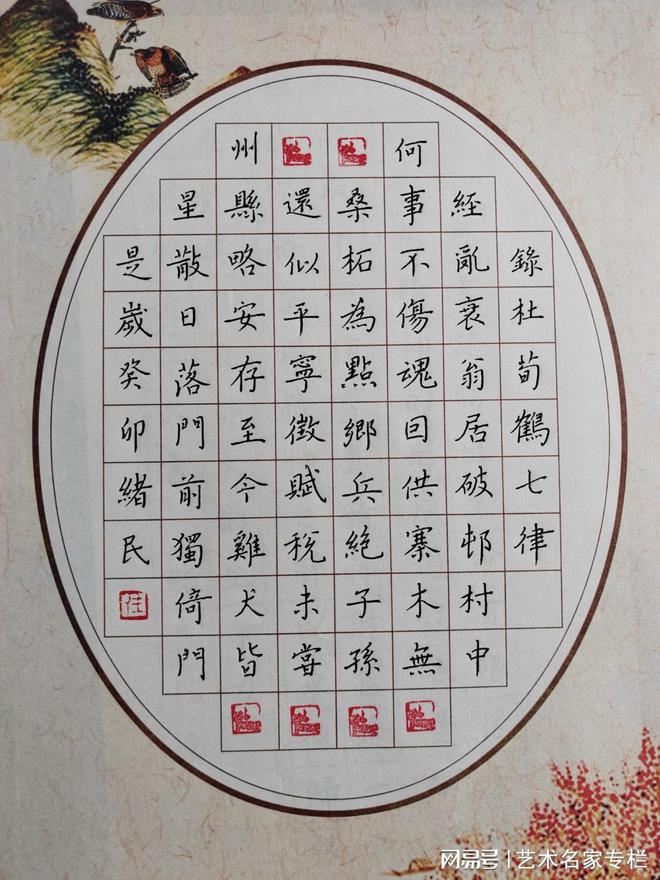 錄杜荀鶴七律
經亂衰翁居破邨村中
何事不傷魂回供寨木無
桑柘為點鄉兵絕子孫
還似平寧徵賦稅未嘗
州縣略安存至今雞犬皆
星散日落門前獨倚門
是歲癸卯緒民
网易号 | 艺术名家专栏